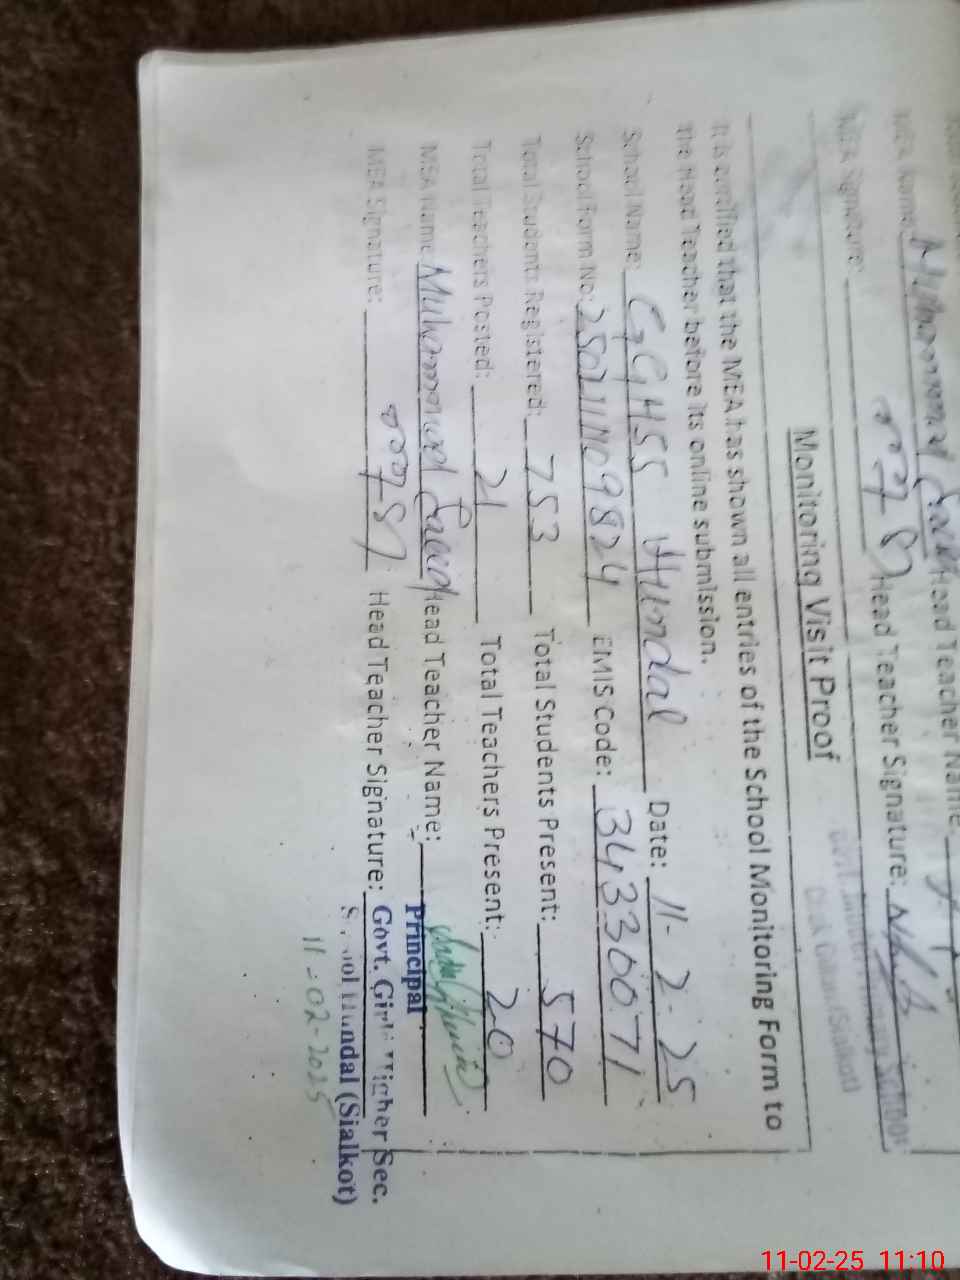 MEA Name: Muhammad Head Teacher Name
MEA Signature: Head Teacher Signature:
Monitoring Visit Proof
It is certified that the MEA has shown all entries of the School Monitoring Form to
the Head Teacher before its online submission.
School Name: GGHSS Hundal Date: 11-2-25
School Form No: EMIS Code: 34330071
Total Students Registered: 753 Total Students Present: 570
Total Teachers Posted: 21 Total Teachers Present: 20
MEA Name: Muhammad Head Teacher Name:
Principal
MEA Signature: Head Teacher Signature: Govt. Girls Higher Sec.
School Hundal (Sialkot)
11-02-2025
11-02-25 11:10